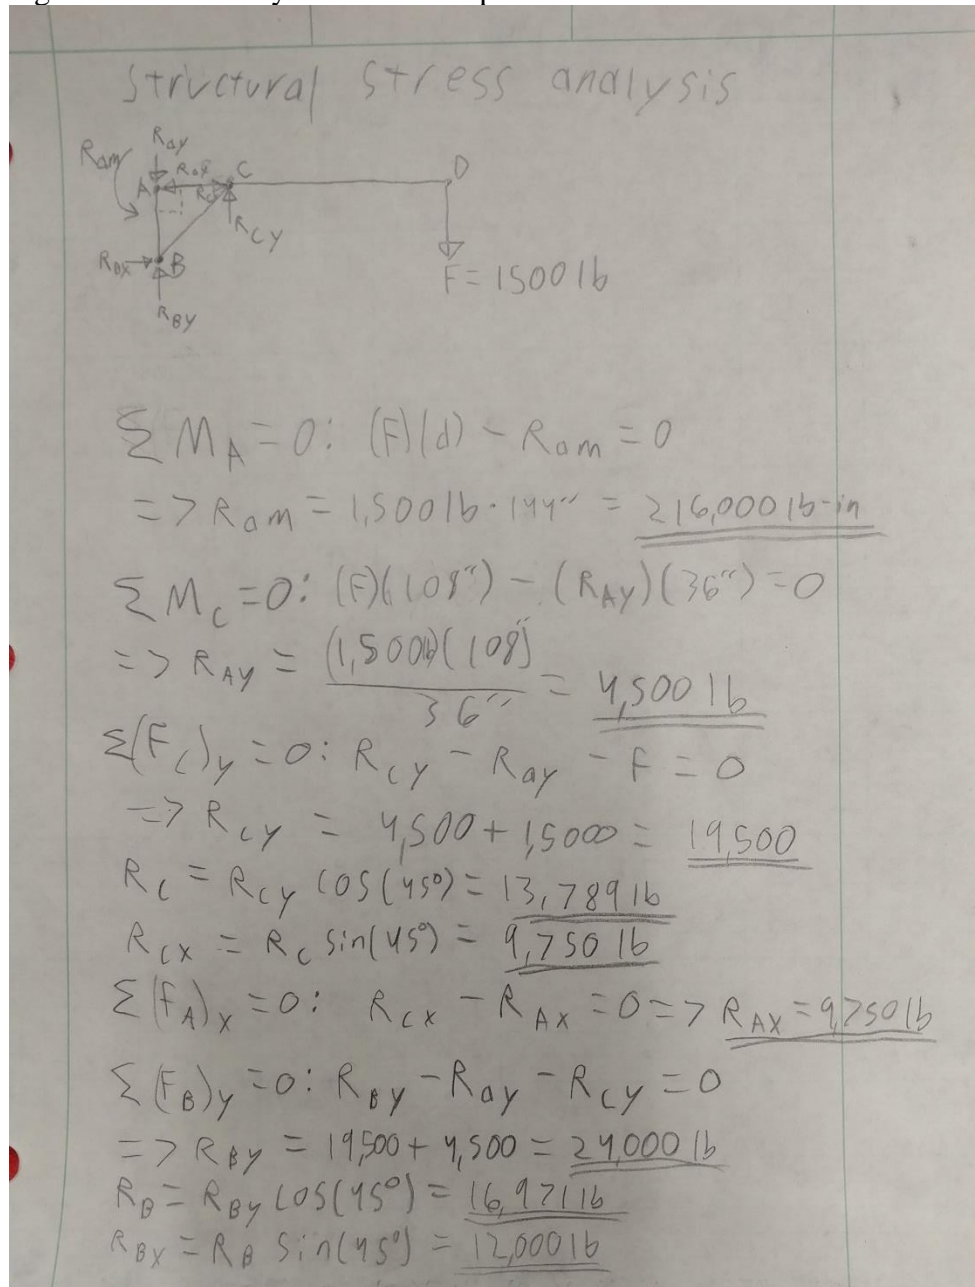 Structural Stress analysis
Ray
Ram
Rax
C
D
A
Rc
RCY
RBX
B
F=1500 lb
RBY
ΣM_A=0: (F)(d) - Ram = 0
=> Ram = 1,500 lb · 144" = 216,000 lb-in
ΣM_C=0: (F)(108") - (R_AY)(36") = 0
=> R_AY = (1,500lb)(108") / 36" = 4,500 lb
Σ(F_C)_y = 0: R_CY - Ray - F = 0
=> R_CY = 4,500 + 1,5000 = 19,500
R_C = R_CY COS(45°) = 13,789 lb
R_CX = R_C sin(45°) = 9,750 lb
Σ(F_A)_X = 0: R_CX - R_AX = 0 => R_AX = 9,750 lb
Σ(F_B)_y = 0: R_BY - Ray - R_CY = 0
=> R_BY = 19,500 + 4,500 = 24,000 lb
R_B = R_BY COS(45°) = 16,971 lb
R_BX = R_B Sin(45°) = 12,000 lb